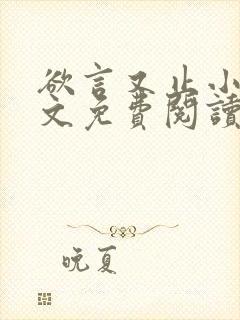 欲言又止小
文免費閱讀
晚夏